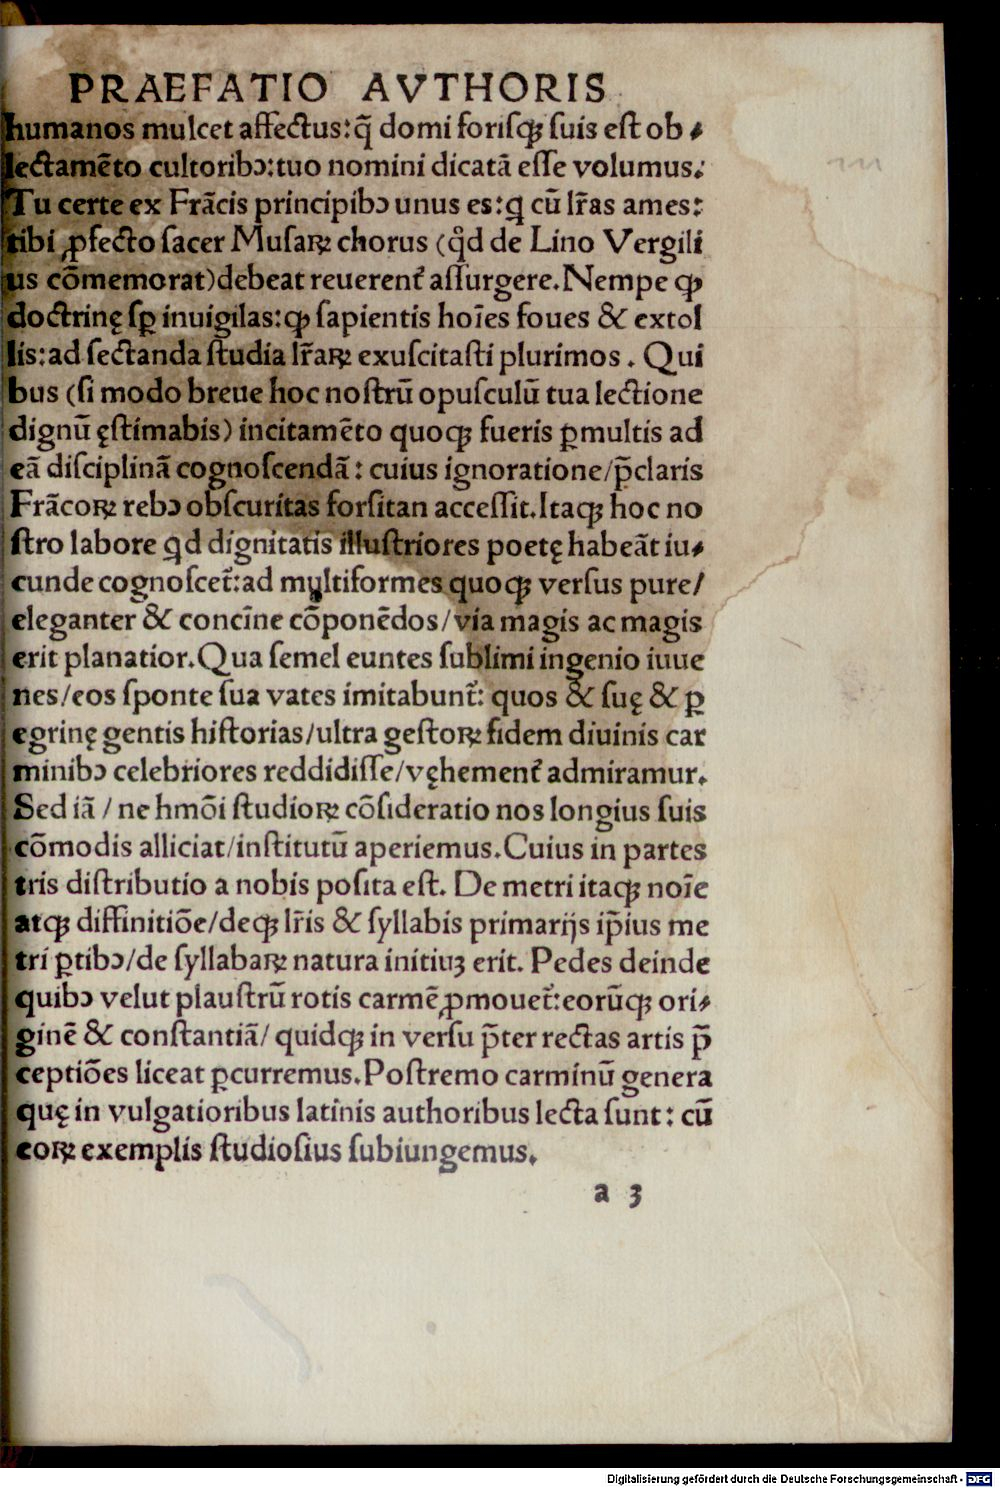 PRAEFATIO AVTHORIS
humanos mulcet affectus: q̃ domi forisqꝫ suis est ob⸗
lectamẽto cultoribꝰ: tuo nomini dicatã esse volumus.
Tu certe ex Frãcis principibꝰ unus es: ꝙ cũ lr̃as ames:
tibi ꝓfecto sacer Musaꝝ chorus (qd̛ de Lino Vergili
us cõmemorat) debeat reuerent̃ assurgere. Nempe ꝙ
doctrinę sꝑ inuigilas: ꝙ sapientis hoĩes foues & extol
lis: ad sectanda studia lr̃aꝝ exuscitasti plurimos. Qui
bus (si modo breue hoc nostrũ opusculũ tua lectione
dignũ ęstimabis) incitamẽto quoqꝫ fueris ꝑmultis ad
eã disciplinã cognoscendã: cuius ignoratione/p̃claris
Frãcoꝝ rebꝰ obscuritas forsitan accessit. Itaqꝫ hoc no
stro labore qd dignitatis illustriores poetę habeãt iu⸗
cunde cognoscet̃: ad multiformes quoqꝫ versus pure/
eleganter & concĩne cõponẽdos/via magis ac magis
erit planatior. Qua semel euntes sublimi ingenio iuue
nes/eos sponte sua vates imitabunt̃: quos & suę & ꝑ
egrinę gentis historias/ultra gestoꝝ fidem diuinis car
minibꝰ celebriores reddidisse/vęhement̃ admiramur.
Sed iã / ne hmõi studioꝝ cõsideratio nos longius suis
cõmodis alliciat/institutũ aperiemus. Cuius in partes
tris distributio a nobis posita est. De metri itaqꝫ noĩe
atqꝫ diffinitiõe/deqꝫ lr̃is & syllabis primarijs ip̃ius me
tri ꝑtibꝰ/de syllabaꝝ natura initiuꝫ erit. Pedes deinde
quibꝰ velut plaustrũ rotis carmẽ ꝓmouet̃: eorũqꝫ ori⸗
ginẽ & constantiã/ quidqꝫ in versu p̃ter rectas artis p̃
ceptiões liceat ꝑcurremus. Postremo carminũ genera
quę in vulgatioribus latinis authoribus lecta sunt: cũ
eoꝝ exemplis studiosius subiungemus.
a 3
Digitalisierung gefördert durch die Deutsche Forschungsgemeinschaft - DFG